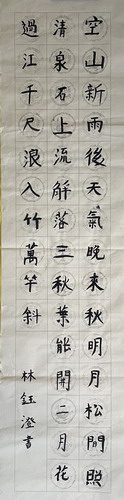 空山新雨後天氣晚來秋明月松間照
清泉石上流解落三秋葉能開二月花
過江千尺浪入竹萬竿斜
林鈺澄書